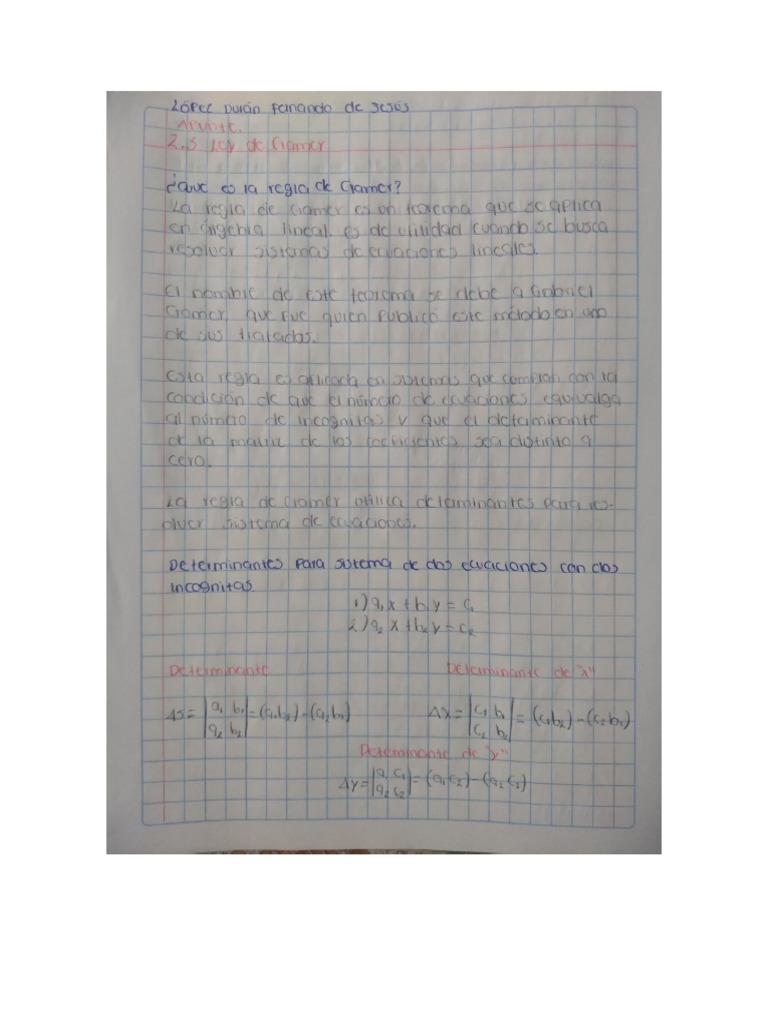 López Durán Fernando de Jesús
Apunte.
2.5 Ley de Cramer
¿Que es la regla de Cramer?
La regla de Cramer es un teorema que se aplica
en álgebra lineal. es de utilidad cuando se busca
resolver sistemas de ecuaciones lineales.
El nombre de este teorema se debe a Gabriel
Cramer, que fue quien publicó este método en uno
de sus tratados.
Esta regla es aplicada en sistemas que cumplan con la
condición de que el número de ecuaciones equivalga
al número de incognitas y que el determinante
de la matriz de los coeficientes sea distinto a
cero.
La regla de Cramer utiliza determinantes para re-
olver sistema de ecuaciones.
Determinantes para sistema de dos ecuaciones con dos
incognitas.
1) a₁x + b₁y = c₁
2) a₂x + b₂y = c₂
Determinante Determinante de "x"
ΔS = |a₁ b₁| = (a₁b₂) - (a₂b₁) ΔX = |c₁ b₁| = (c₁b₂) - (c₂b₁)
|a₂ b₂| |c₂ b₂|
Determinante de "y"
ΔY = |a₁ c₁| = (a₁c₂) - (a₂c₁)
|a₂ c₂|